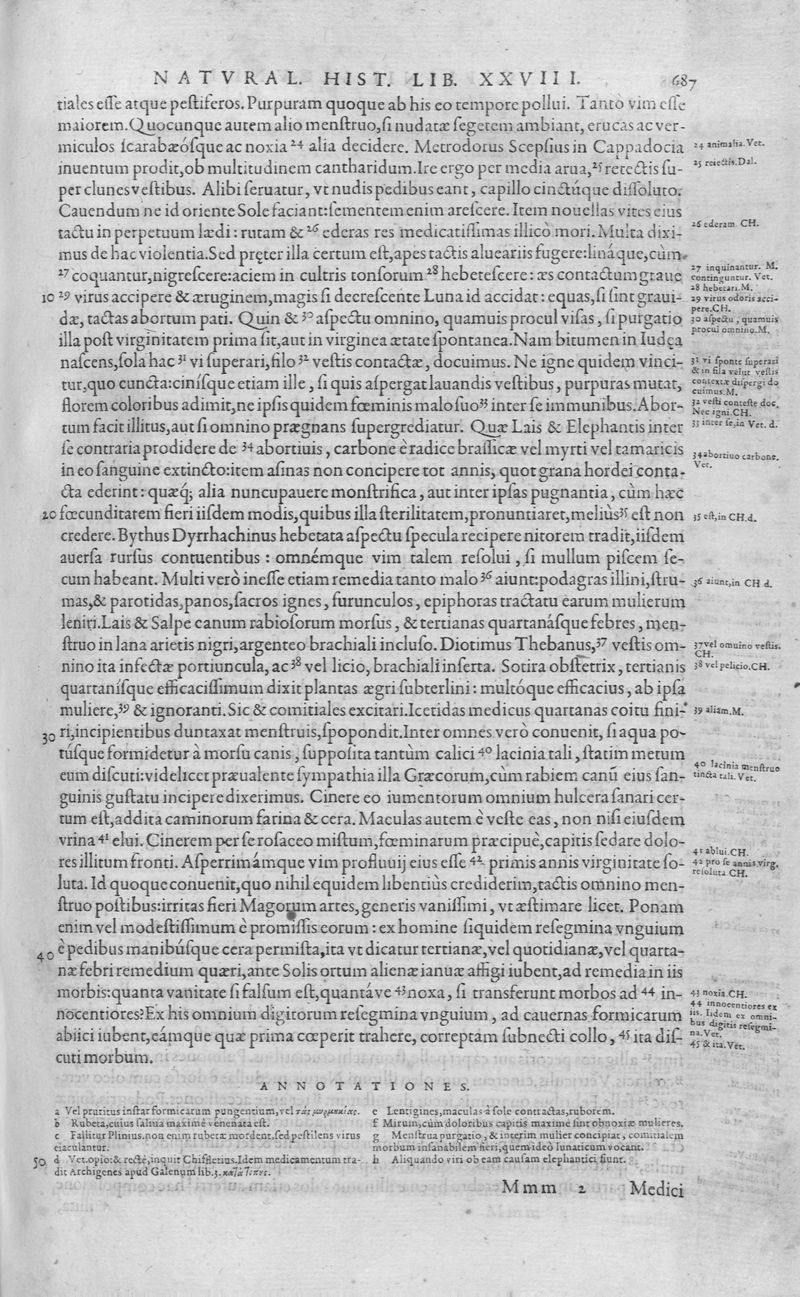 NATVRAL. HIST. LIB. XXVIII.
687
tiales esſe atque peſtiferos. Purpuram quoque ab his eo tempore pollui. Tantò vim eſſe
maiorem. Quocunque autem alio menſtruo, ſi nudatæ ſegetem ambiant, erucas ac ver-
miculos ſcarabæóſque ac noxia ²⁴ alia decidere. Metrodorus Scepſius in Cappadocia
inuentum prodit, ob multitudinem cantharidum. Ire ergo per media arua, ²⁵ retectis ſu-
per clunes veſtibus. Alibi ſeruatur, vt nudis pedibus eant, capillo cinctúque diſſoluto.
Cauendum ne id oriente Sole faciant: ſementem enim areſcere. Item nouellas vites eius
tactu in perpetuum lædi: rutam & ²⁶ ederas res medicatiſſimas illicò mori. Multa dixi-
mus de hac violentia. Sed pręter illa certum eſt, apes tactis aluearìis fugere: lináque, cùm
²⁷ coquantur, nigreſcere: aciem in cultris tonſorum ²⁸ hebeteſcere: æs contactum graue
10 ²⁹ virus accipere & æruginem, magis ſi decreſcente Luna id accidat: equas, ſi ſint graui-
dæ, tactas abortum pati. Quin & ³⁰ aſpectu omnino, quamuis procul viſas, ſi purgatio
illa poſt virginitatem prima ſit, aut in virginea ætate ſpontanea. Nam bitumen in Iudęa
naſcens, ſola hac ³¹ vi ſuperari, filo ³² veſtis contactæ, docuimus. Ne igne quidem vinci-
tur, quo cuncta: ciniſque etiam ille, ſi quis aſpergat lauandis veſtibus, purpuras mutat,
florem coloribus adimit, ne ipſis quidem fœminis malo ſuo ³³ inter ſe immunibus. Abor-
tum facit illitus, aut ſi omnino prægnans ſupergrediatur. Quæ Lais & Elephantis inter
ſe contraria prodidere de ³⁴ abortiuis, carbone è radice braſſicæ vel myrti vel tamaricis
in eo ſanguine extincto: item aſinas non concipere tot annis, quot grana hordei conta-
cta ederint: quæq; alia nuncupauere monſtrifica, aut inter ipſas pugnantia, cùm hæc
20 fœcunditatem fieri iiſdem modis, quibus illa ſterilitatem, pronuntiaret, meliùs ³⁵ eſt non
credere. Bythus Dyrrhachinus hebetata aſpectu ſpecula recipere nitorem tradit, iiſdem
auerſa rurſus contuentibus: omnémque vim talem reſolui, ſi mullum piſcem ſe-
cum habeant. Multi verò ineſſe etiam remedia tanto malo ³⁶ aiunt: podagras illini, ſtru-
mas, & parotidas, panos, ſacros ignes, furunculos, epiphoras tractatu earum mulierum
leniri. Lais & Salpe canum rabioſorum morſus, & tertianas quartanáſque febres, men-
ſtruo in lana arietis nigri, argenteo brachiali incluſo. Diotimus Thebanus, ³⁷ veſtis om-
nino ita infectæ portiuncula, ac ³⁸ vel licio, brachiali inſerta. Sotira obſtetrix, tertianis
quartaniſque efficaciſſimum dixit plantas ægri ſubterlini: multóque efficacius, ab ipſa
muliere, ³⁹ & ignoranti. Sic & comitiales excitari. Icetidas medicus quartanas coitu fini-
30 ri, incipientibus duntaxat menſtruis, ſpopondit. Inter omnes verò conuenit, ſi aqua po-
túſque formidetur à morſu canis, ſuppoſita tantùm calici ⁴⁰ lacinia tali, ſtatim metum
eum diſcuti: videlicet præualente ſympathia illa Græcorum, cùm rabiem canū eius ſan-
guinis guſtatu incipere dixerimus. Cinere eo iumentorum omnium hulcera ſanari cer-
tum eſt, addita caminorum farina & cera. Maculas autem è veſte eas, non niſi eiuſdem
vrina ⁴¹ elui. Cinerem per ſe roſaceo miſtum, fœminarum præcipuè, capitis ſedare dolo-
res illitum fronti. Aſperrimámque vim profluuij eius eſſe ⁴² primis annis virginitate ſo-
luta. Id quoque conuenit, quo nihil equidem libentiùs crediderim, tactis omnino men-
ſtruo poſtibus: irritas fieri Magorum artes, generis vaniſſimi, vt æſtimare licet. Ponam
enim vel modeſtiſſimum è promiſſis eorum: ex homine ſiquidem reſegmina vnguium
40 è pedibus manibúſque cera permiſta, ita vt dicatur tertianæ, vel quotidianæ, vel quarta-
næ febri remedium quæri, ante Solis ortum alienæ ianuæ affigi iubent, ad remedia in iis
morbis: quanta vanitate ſi falſum eſt, quantáve ⁴³ noxa, ſi transferunt morbos ad ⁴⁴ in-
nocentiores? Ex his omnium digitorum reſegmina vnguium, ad cauernas formicarum
abiici iubent, eámque quæ prima cœperit trahere, correptam ſubnecti collo, ⁴⁵ ita diſ-
cuti morbum.
24 animalia. Vet.
25 reiectis. Dal.
26 ederam CH.
27 inquinantur. M.
continguntur. Vet.
28 hebetari. M.
29 virus odoris acci-
pere. CH.
30 aſpectu, quamuis
procul omnino. M.
31 vi ſponte ſuperari
& in fila velut veſtis
contextæ diſpergi do
cuimus. M.
32 veſti conteſte doc.
Nec igni. CH.
33 inter ſe, in Vet. d.
34 abortiuo carbone.
Vet.
35 eſt, in CH. d.
36 aiunt, in CH d.
37 vel omnino veſtis.
CH.
38 vel pelicio. CH.
39 aliam. M.
40 lacinia menſtruo
tincta tali. Vet.
41 ablui. CH.
42 pro ſe annis virg.
reſoluta CH.
43 noxia CH.
44 innocentiores ex
iis. Iidem ex omni-
bus digitis reſegmi-
na. Vet.
45 & ita. Vet.
ANNOTATIONES.
a Vel pruritus inſtar formicarum pungentium, vel τὰς μυρμηκίας.
b Rubeta, cuius ſaliua maximè venenata eſt.
c Fallitur Plinius. non enim rubetæ mordent. ſed peſtilens virus
eiaculantur.
50 d Vet. opio: & rectè, inquit Chiffletius. Idem medicamentum tra-
dit Archigenes apud Galenum lib. 3. κατὰ τόπους.
e Lentigines, maculas à ſole contractas, ruborem.
f Mirum, cùm doloribus capitis maximè ſint obnoxiæ mulieres.
g Menſtrua purgatio, & interim mulier concipiat, comitialem
morbum inſanabilem fieri, quem ideò lunaticum vocant.
h Aliquando viri ob eam cauſam elephantici fiunt.
Mmm 2 Medici